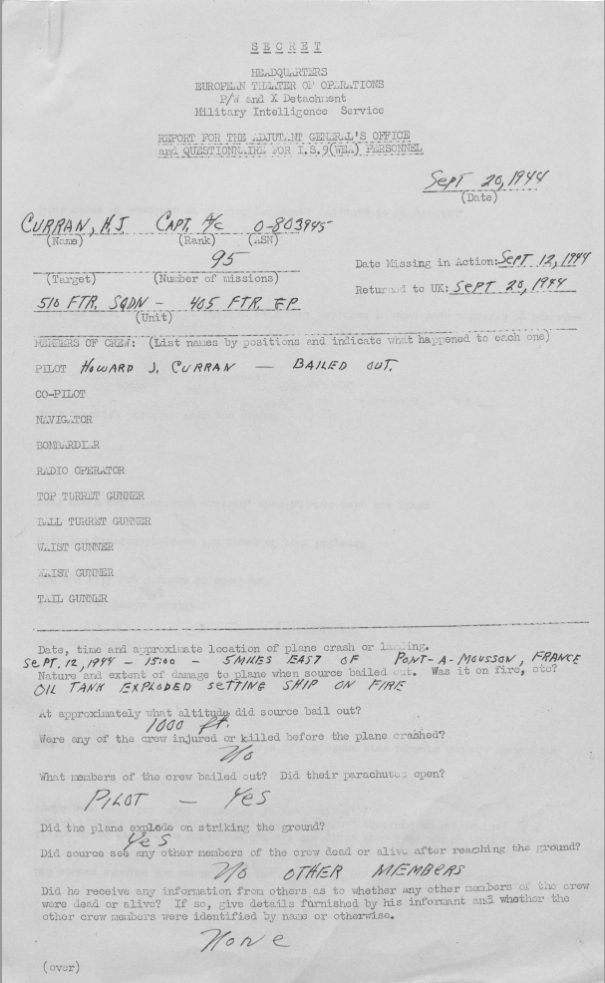 SECRET
HEADQUARTERS
EUROPEAN THEATER OF OPERATIONS
P/W and X Detachment
Military Intelligence Service
REPORT FOR THE ADJUTANT GENERAL'S OFFICE
and QUESTIONNAIRE FOR I.S.9(WEA) PERSONNEL
SEPT 20, 1944
(Date)
CURRAN, H.J. CAPT. A/C 0-803945
(Name) (Rank) (ASN)
95
(Target) (Number of missions)
Date Missing in Action: SEPT 12, 1944
Returned to UK: SEPT 20, 1944
510 FTR. SQDN - 405 FTR. GP.
(Unit)
MEMBERS OF CREW: (List names by positions and indicate what happened to each one)
PILOT HOWARD J. CURRAN — BAILED OUT.
CO-PILOT
NAVIGATOR
BOMBARDIER
RADIO OPERATOR
TOP TURRET GUNNER
BALL TURRET GUNNER
WAIST GUNNER
WAIST GUNNER
TAIL GUNNER
Date, time and approximate location of plane crash or landing.
SEPT. 12, 1944 - 15:00 - 5 MILES EAST OF PONT-A-MOUSSON, FRANCE
Nature and extent of damage to plane when source bailed out. Was it on fire, etc?
OIL TANK EXPLODED SETTING SHIP ON FIRE
At approximately what altitude did source bail out?
1000 ft.
Were any of the crew injured or killed before the plane crashed?
No
What members of the crew bailed out? Did their parachutes open?
PILOT — YES
Did the plane explode on striking the ground?
YES
Did source see any other members of the crew dead or alive after reaching the ground?
NO OTHER MEMBERS
Did he receive any information from others as to whether any other members of the crew
were dead or alive? If so, give details furnished by his informant and whether the
other crew members were identified by name or otherwise.
None
(over)